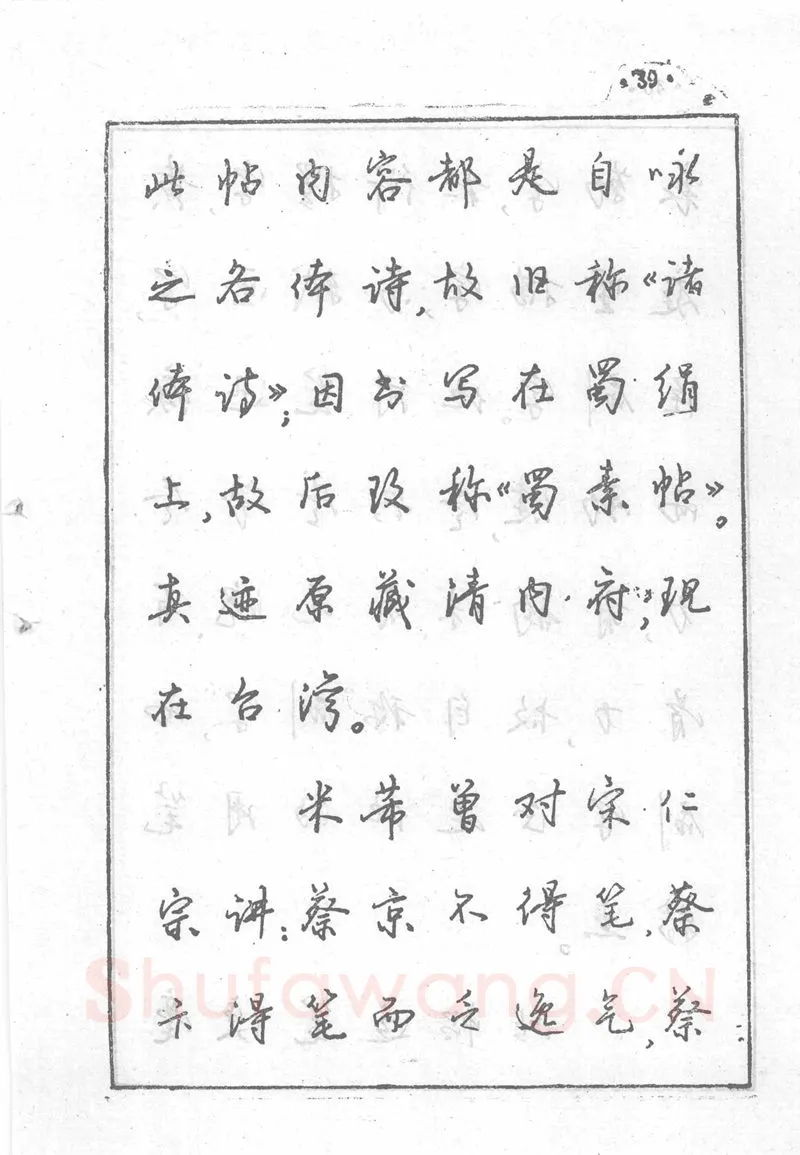 ·39·
此帖内容都是自咏
之各体诗,故旧称《诸
体诗》;因书写在蜀绢
上,故后改称《蜀素帖》。
真迹原藏清内府,现
在台湾。
米芾曾对宋仁
宗讲:蔡京不得笔,蔡
卞得笔而乏逸气,蔡
Shufawang.CN